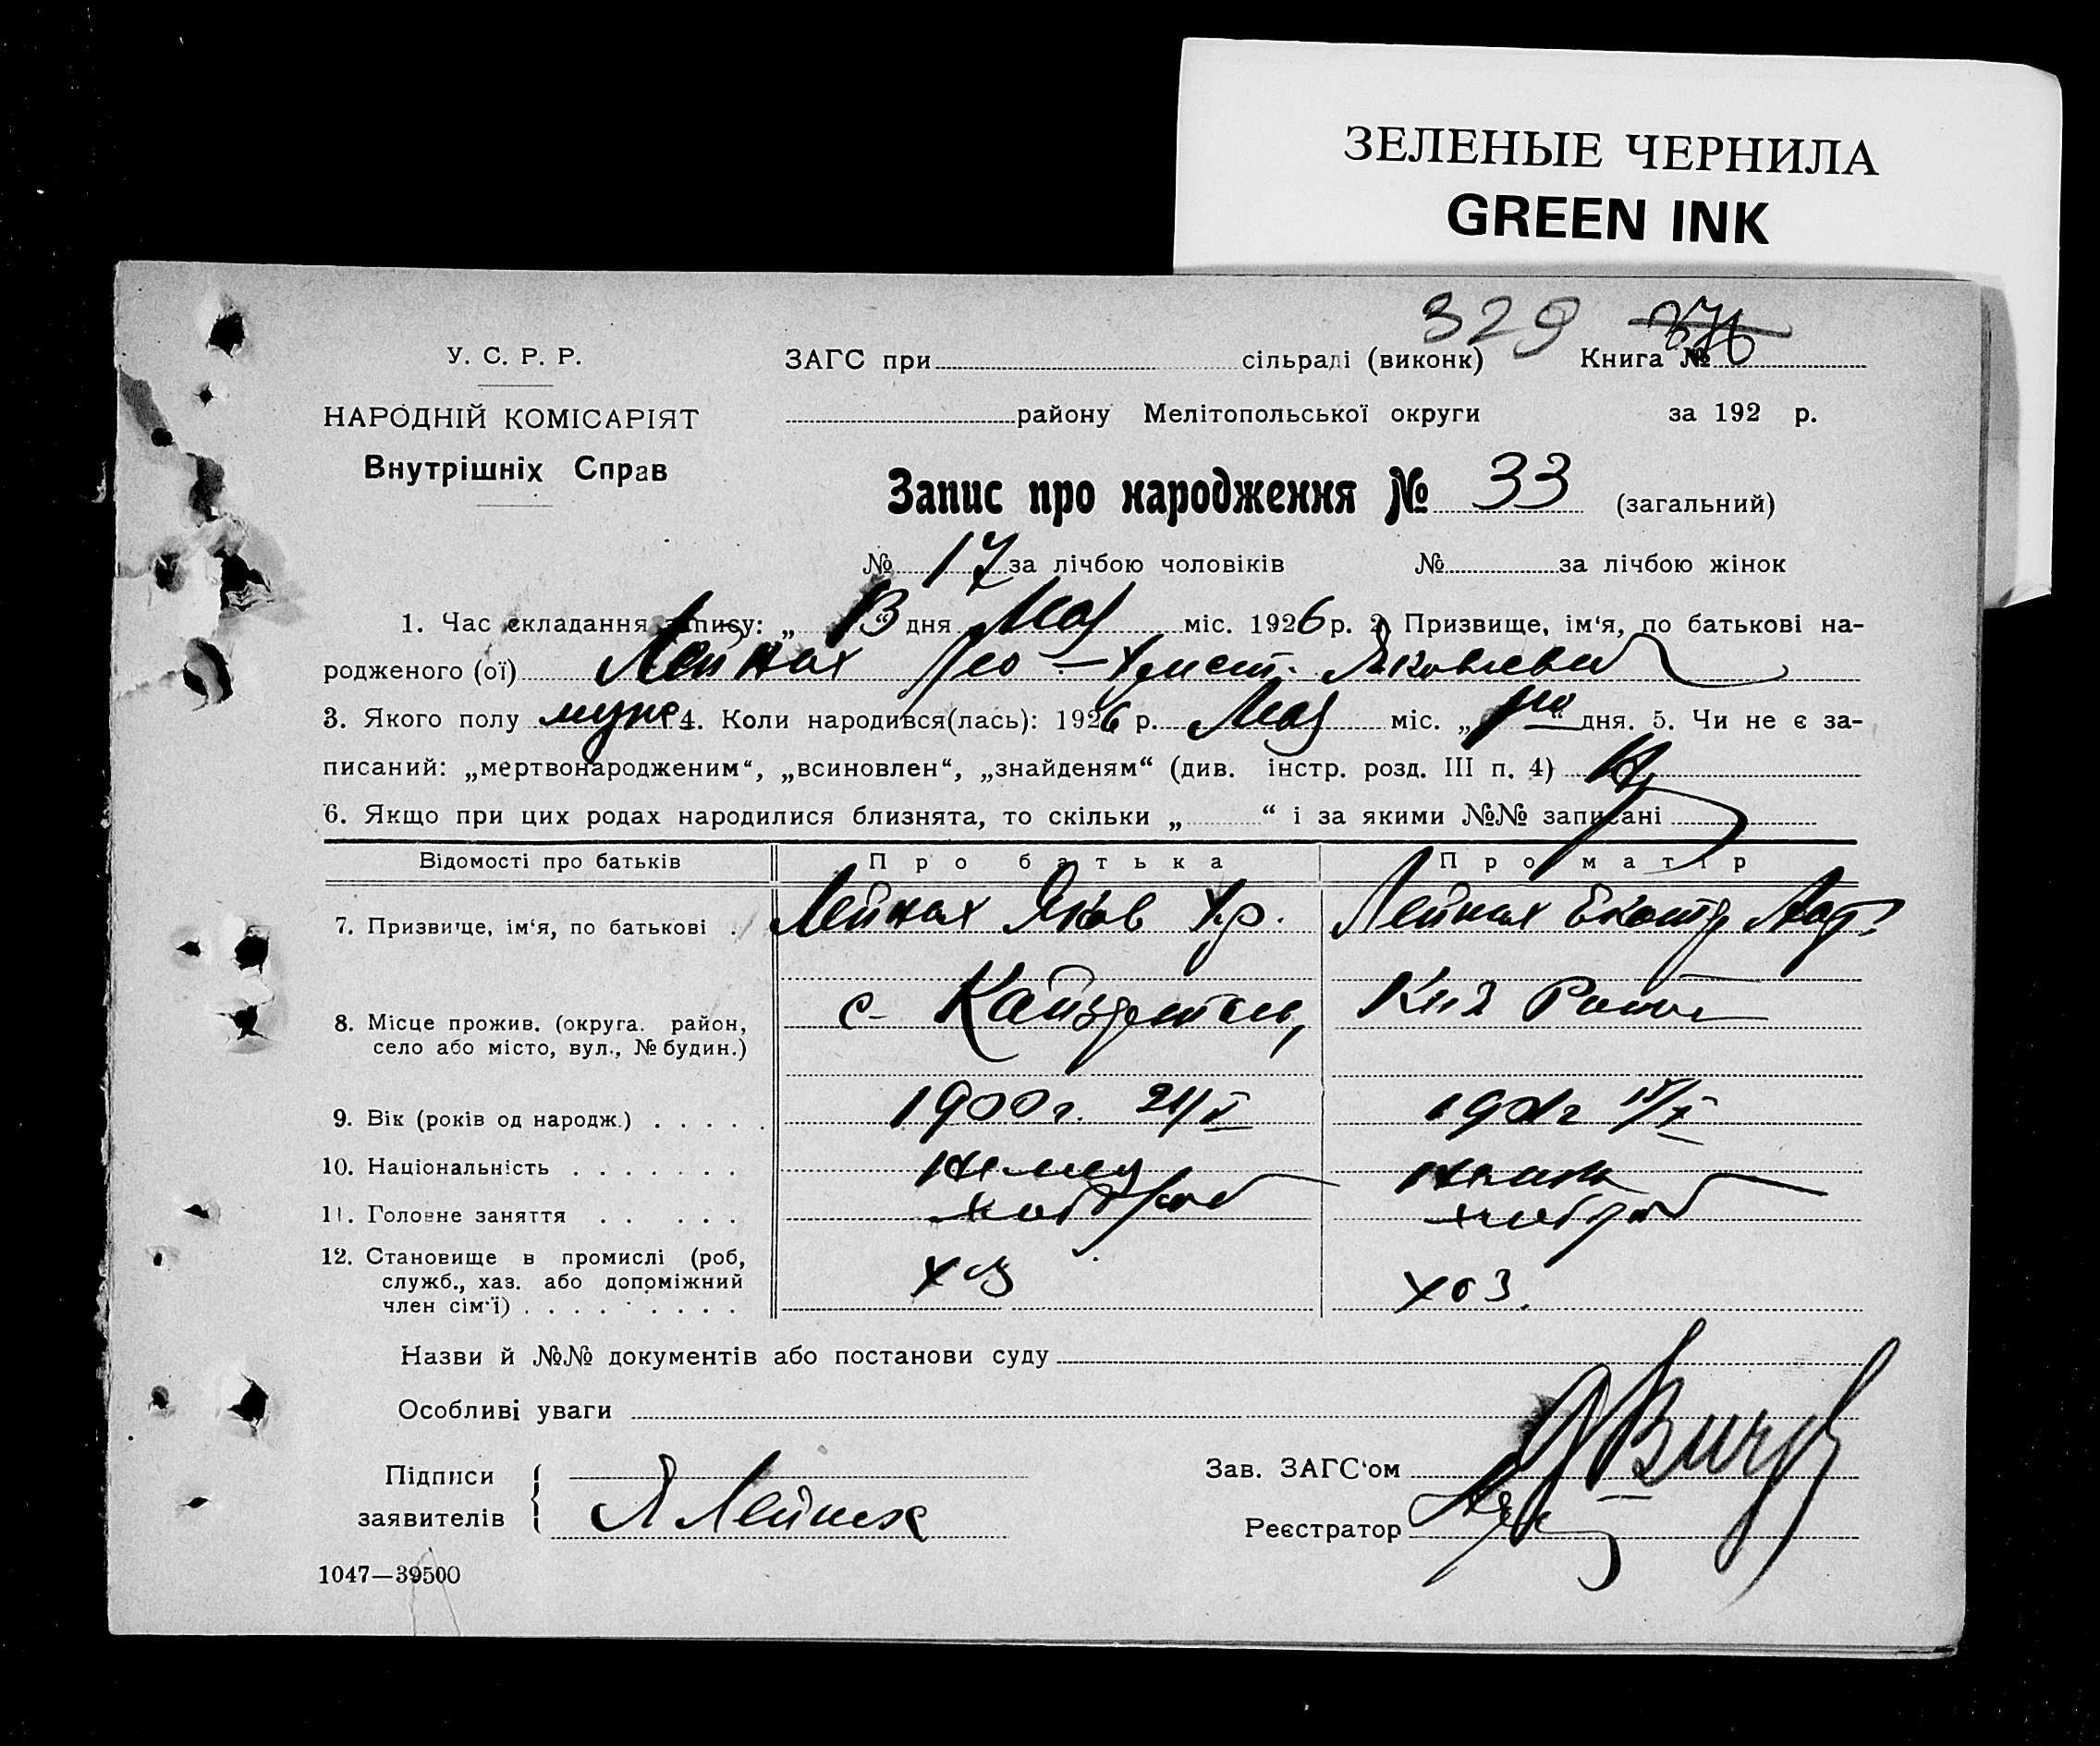 ЗЕЛЕНЫЕ ЧЕРНИЛА
GREEN INK
329 376
У. С. Р. Р. ЗАГС при сільраді (виконк) Книга №
НАРОДНІЙ КОМІСАРІЯТ району Мелітопольської округи за 192 р.
Внутрішніх Справ
Запис про народження № 33 (загальний)
№ 17 за лічбою чоловіків № за лічбою жінок
1. Час складання запису: „13“ дня Мая міс. 1926 р. 2. Призвище, ім‘я, по батькові на-
родженого (ої) Лейнах Лео - Яковлевич
3. Якого полу муж 4. Коли народився(лась): 1926 р. Мая міс. „ “ дня. 5. Чи не є за-
писаний: „мертвонародженим“, „всиновлен“, „знайденям“ (див. інстр. розд. III п. 4)
6. Якщо при цих родах народилися близнята, то скільки „ “ і за якими №№ записані
Відомості про батьків Про батька Про матір
7. Призвище, ім‘я, по батькові . Лейнах Яков Хр. Лейнах
8. Місце прожив. (округа. район, с.
село або місто, вул., № будин.)
9. Вік (років од народж.) . . . . . 1900 г. 21/X
10. Національність . . . . . . . немец немка
11. Головне заняття . . . . . хлебороб хлебороб
12. Становище в промислі (роб, хоз хоз.
служб., хаз. або допоміжний
член сім‘ї) . . . . . . . . .
Назви й №№ документів або постанови суду
Особливі уваги
Підписи Зав. ЗАГС‘ом
заявителів Я Лейнах Реєстратор
1047—39500